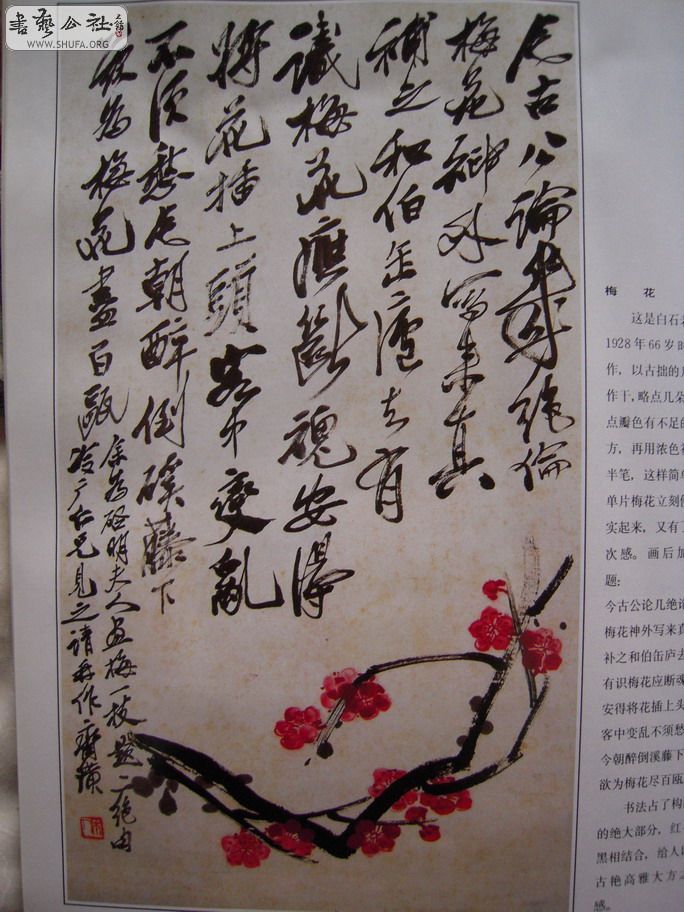 書藝公社
WWW.SHUFA.ORG
今古公論幾絕倫
梅花神外寫來真
補之和伯缶廬去有
識梅花應斷魂安得
將花插上頭客中變亂
不須愁今朝醉倒溪藤下
欲為梅花盡百甌
余為啟明夫人畫梅一枝題二絕句
兄見之請再作齊璜
梅 花
这是白石老
1928年66岁时
作，以古拙的
作干，略点几朵
点瓣色有不足的
方，再用浓色
半笔，这样简单
单片梅花立刻
实起来，又有了
次感。画后加
题：
今古公论几绝
梅花神外写来真
补之和伯缶庐去
有识梅花应断魂
安得将花插上头
客中变乱不须愁
今朝醉倒溪藤下
欲为梅花尽百瓯
书法占了构
的绝大部分，红
黑相结合，给人以
古艳高雅大方之
感。